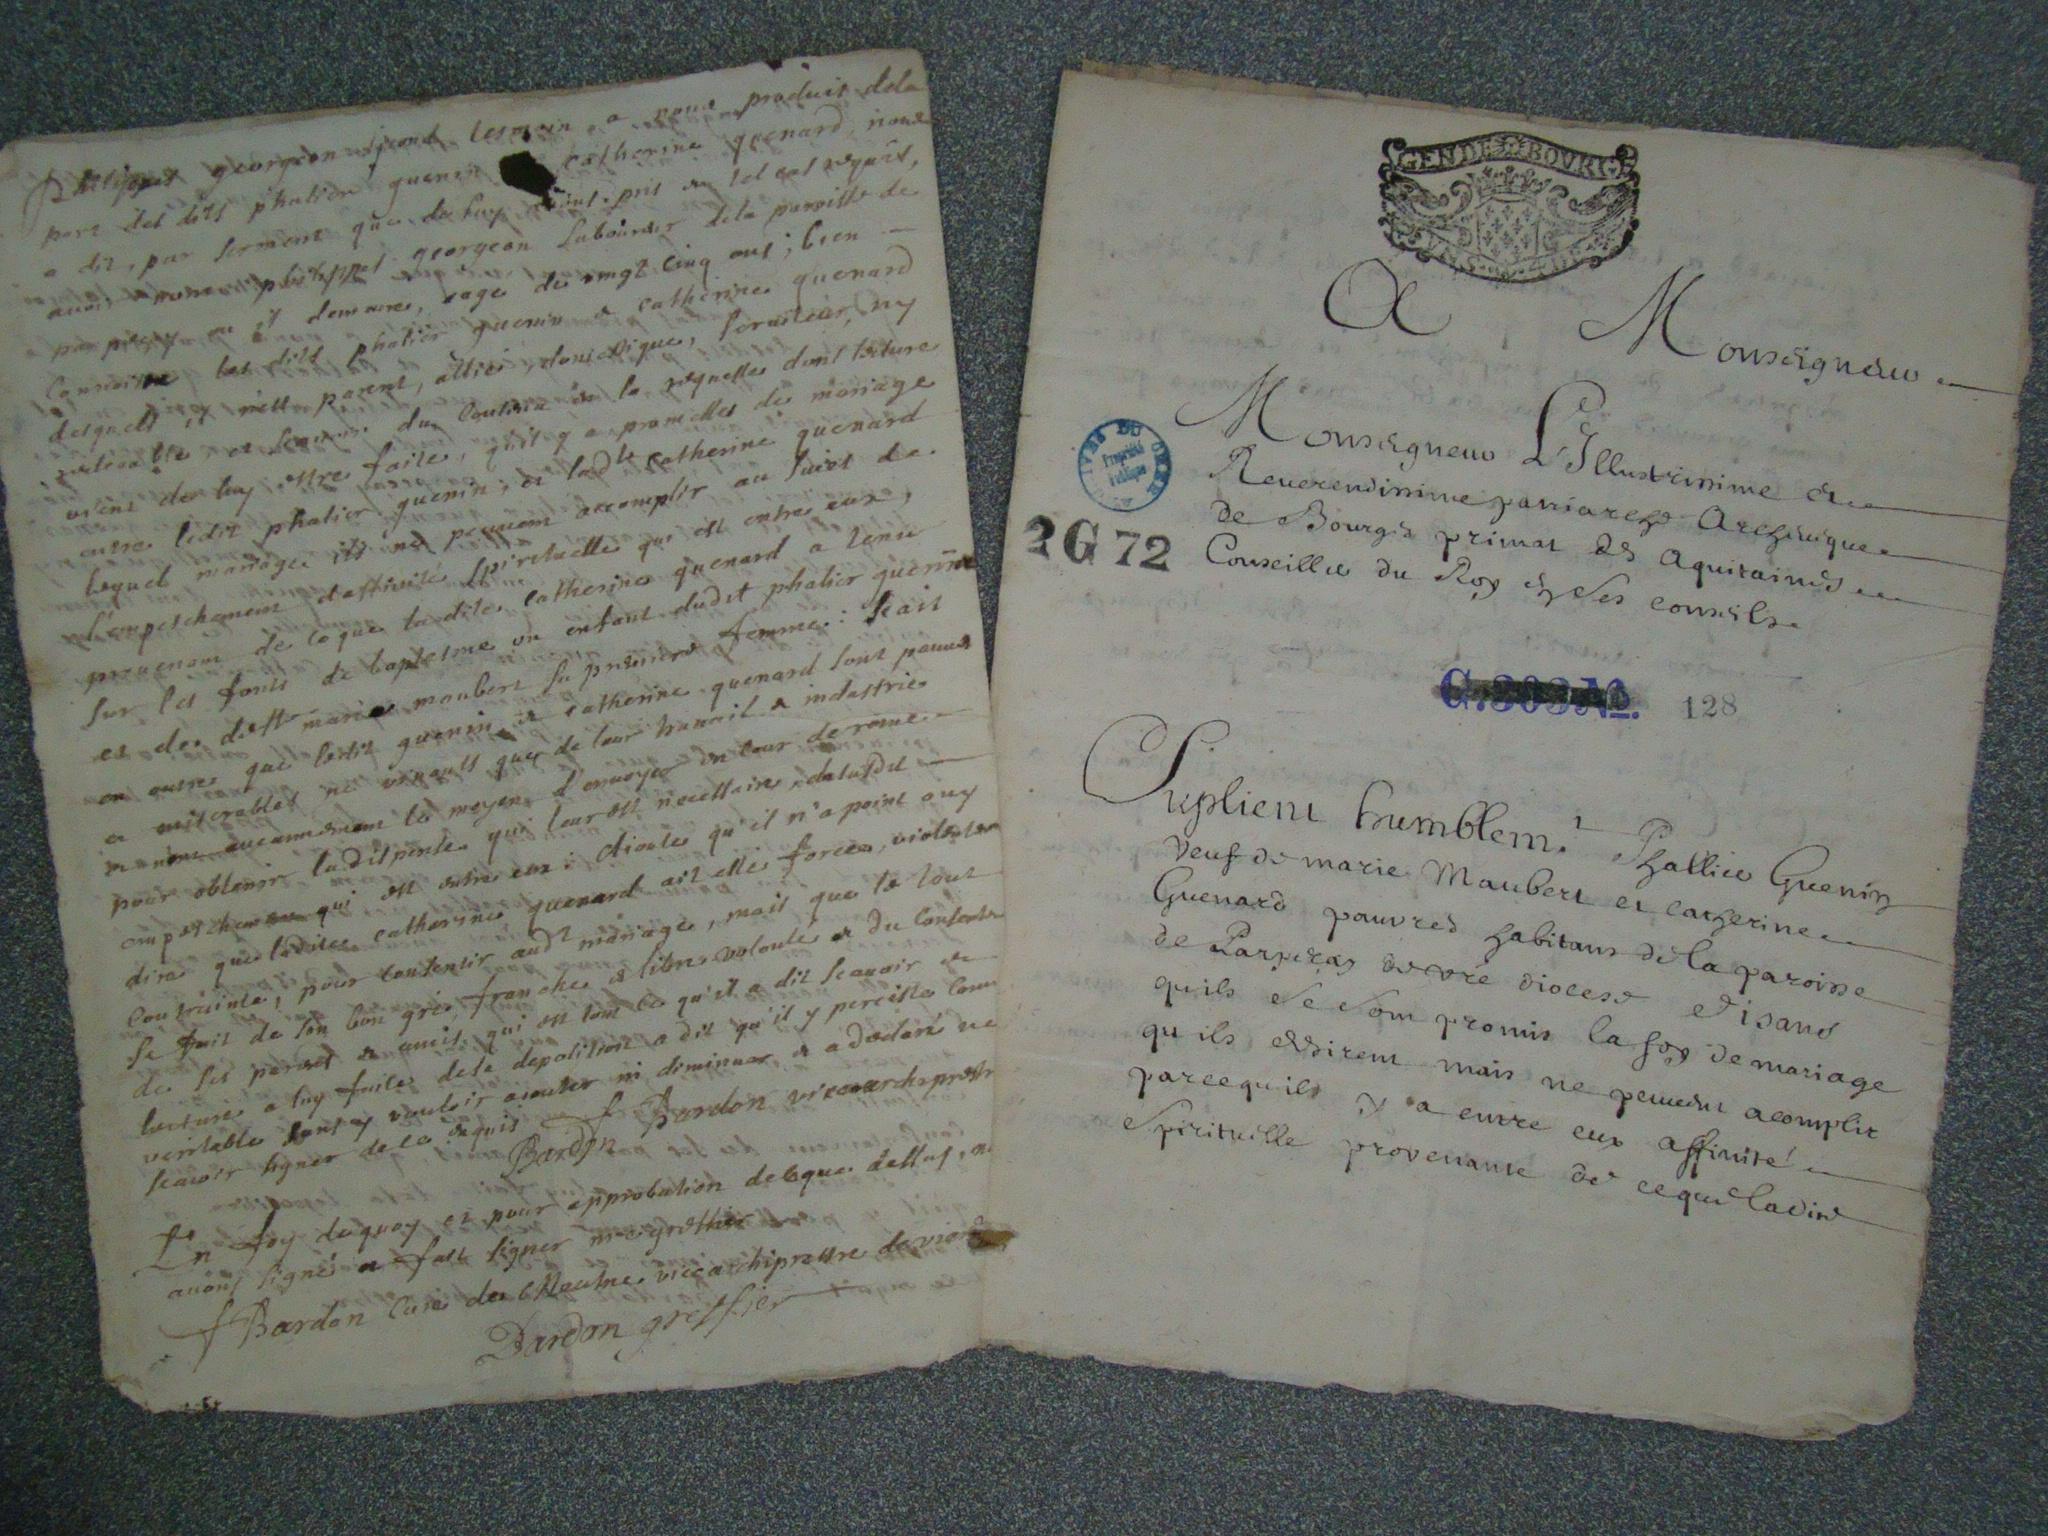 Philippes georgeon second tesmoin a nous produit de la
part des dits phalier guenin catherine guenard, nous
a dit, par serment que de luy avons pris en tel cas requis,
avoir nom philippes georgeon Laboureur de la paroisse de
parpeçay ou il demeure, eagé de vingt cinq ans; bien
connoistre les dits phalier guenin & catherine guenard
desquels il n'est parent, allié, domestique, seruiteur, ny
redevable et scauoir du contenu en la requeste dont lecture
vient de luy estre faite, qu'il y a promesses de mariage
entre ledit phalier guenin; et lad.te catherine guenard
lequel mariage ils ne peuuent accomplir au suiet de
l'empeschement d'affinité spirituelle qui est entre eux,
prouenant de ce que la dite catherine guenard a tenu
sur les fonts de baptesme un enfant dudit phalier guenin
et de marie maubert sa premiere femme: scait
en outre que ledit guenin & catherine guenard sont pauures
et miserables ne viuants que de leur trauail & industrie
n'ayant aucunement le moyen d'enuoyer en cour de rome
pour obtenir la dispense qui leur est necessaire dalasdit
empeschement qui est entre eux: Aioute qu'il n'a point ouy
dire que ladite catherine guenard ait esté forcée, violentée
contrainte, pour consentir aud.t mariage, mais que le tout
se fait de son bon gré, franche & libre volonté & du consente
de ses parens & amis, qui est tout ce qu'il a dit scauoir &
lecture a luy faite de sa deposition a dit qu'il y persiste
veritable sans y vouloir aiouter ni diminuer, & a declaré ne
scauoir signer de ce requis f Bardon vicearchiprestre
Bardon
En foy de quoy et pour approbation de ce que dessus,
auons signé & fait signer nre greffier
f Bardon Curé de vicearchiprestre de
Bardon greffier
GEN DE BOVRG
A Monseigneur
Monseigneur L'Illustrissime et
Reuerendissime patriarche Archeuique
de Bourges primat des Aquitaines
Conseiller du Roy en ses conseils
ARCHIVES DU CHER
Propriété
Publique
2 G 72
G.303 No. 128
Suplient humblem.t Phallier Guenin
veuf de marie Maubert et catherine
Guenard pauvres habitans de la paroisse
de Parpeçay de vre diocese disans
quils se sont promis la foy de mariage
qu ils desirent mais ne peuuent acomplir
parcequ'ils y a entre eux affinité
spirituelle provenante de ceque ladite